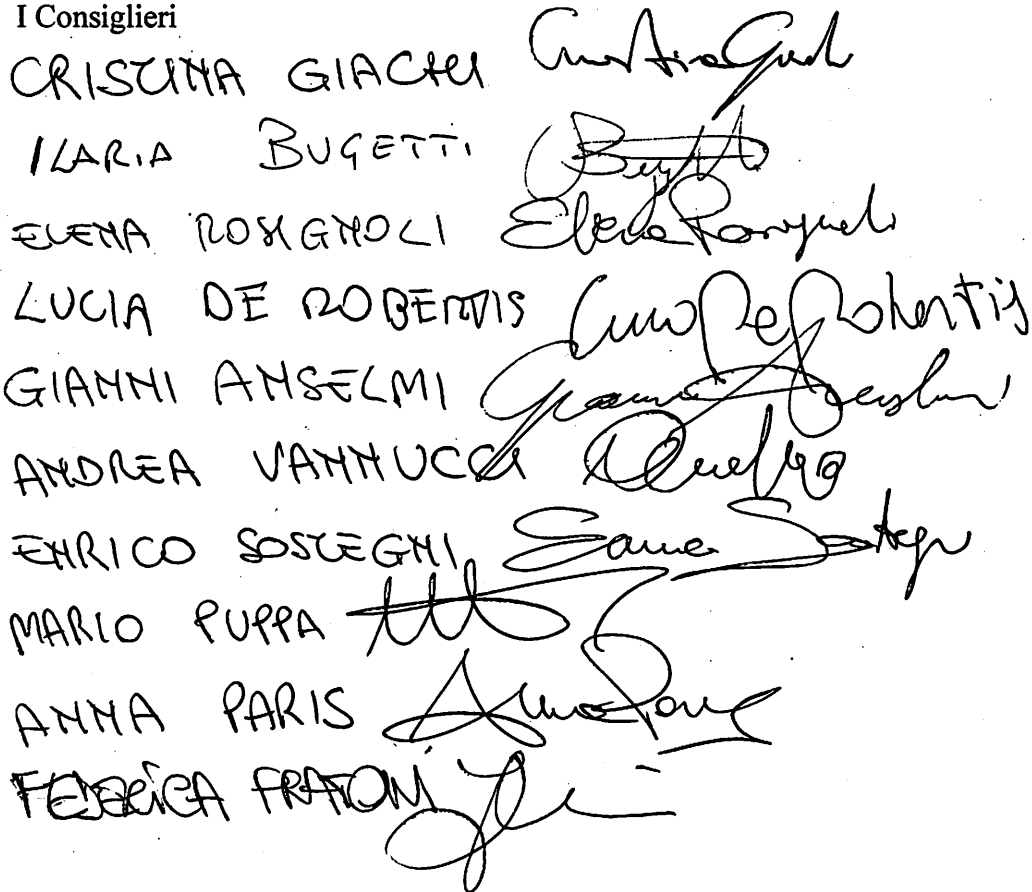 I Consiglieri
CRISTINA GIACHI Cristina Giachi
ILARIA BUGETTI
ELENA ROSIGNOLI Elena Rosignoli
LUCIA DE ROBERTIS Lucia De Robertis
GIANNI ANSELMI Gianni Anselmi
ANDREA VANNUCCI
ENRICO SOSTEGNI Enrico Sostegni
MARIO PUPPA
ANNA PARIS Anna Paris
FEDERICA FRATONI